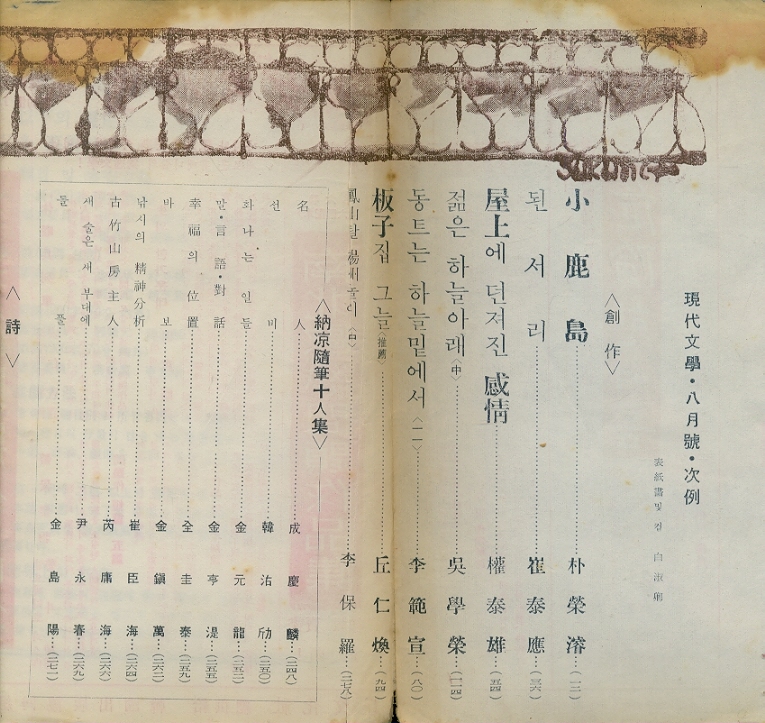 現代文學・八月號・次例
表紙畵및 컷 白淑卿
〈創作〉
小鹿島 朴榮濬 (一二)
된서리 崔泰應 (三六)
屋上에 던져진 感情 權泰雄 (五四)
젊은 하늘아래 (中) 吳學榮 (一一四)
동트는 하늘밑에서 (一一) 李範宣 (八〇)
板子집 그늘 (推薦) 丘仁煥 (九四)
鳳山탈 楊州놀이 (中) 李保羅 (二七八)
〈納凉隨筆十人集〉
名人 成慶麟 (二四八)
선비 韓沽劤 (二五〇)
화나는 일들 金元龍 (二五二)
말・言語・對話 金亨湜 (二五五)
幸福의 位置 全圭泰 (二五九)
바보 金鎭萬 (二六二)
낚시의 精神分析 崔臣海 (二六四)
古竹山房主人 芮庸海 (二六六)
새 술은 새 부대에 尹永春 (二六九)
金島陽 (二七一)
〈詩〉